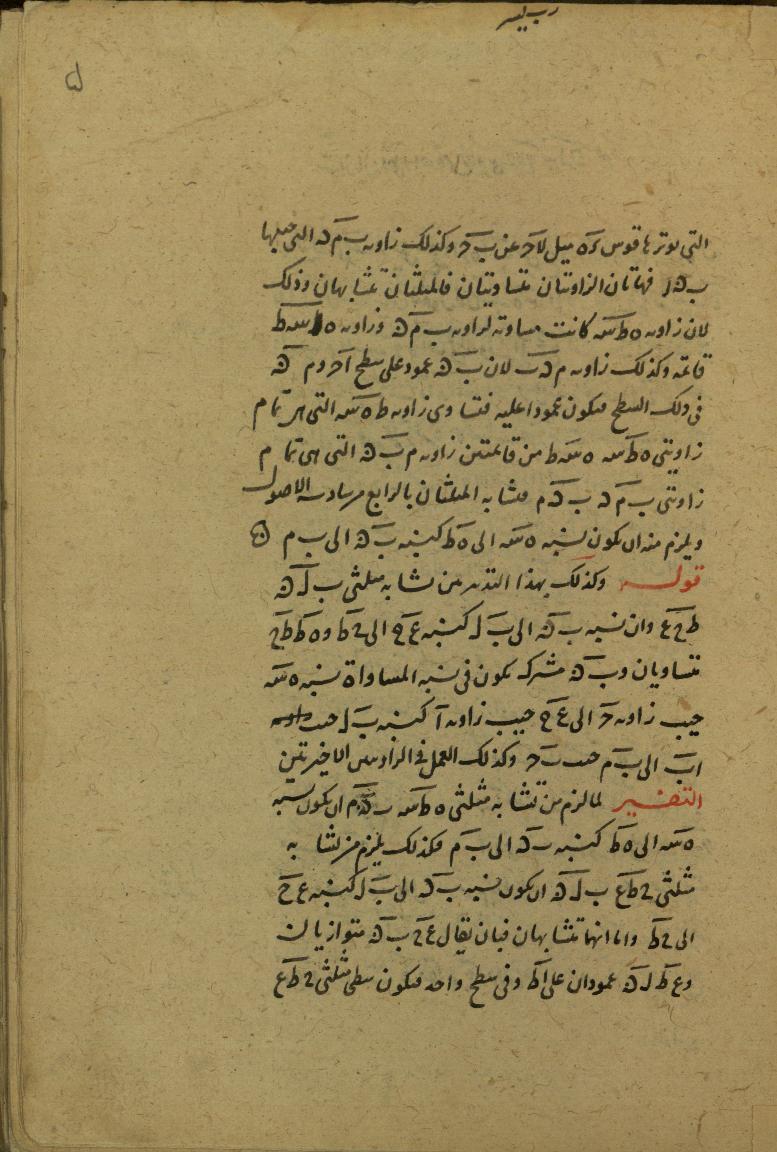 التي يوترها قوس كه ميل لاحر عن ب حر وكذلك زاويه ب م د التي
ب د فهاتان الزاويتان متساويتان فالمثلثان متشابهان وذلك
لان زاويه ه ط سه كانت مساويه لزاويه ب م د وزاويه ه سه ط
قائمه وكذلك زاويه م د ب لان ب د عمود على سطح آخر وم د
في ذلك السطح فيكون عمودا عليه فتساوى زاويه ط ه سه التي هي تمام
زاويتي ه ط سه ه سه ط من قائمتين زاويه م ب د التي هي تمام
زاويتي ب م د ب د م فتشابه المثلثان بالرابع من سادسه الاصول
ويلزم منه ان يكون نسبه ه سه الى ه ط كنسبه ب د الى ب م
قوله وكذلك بهذا التدبير من تشابه مثلثي ب ل د
ط ح ع وان نسبه ب د الى ب ل كنسبه ع ح الى ح ط وه ط ط ح
متساويان وب د مشترك يكون في نسبه المساواة نسبه ه سه
جيب زاويه حر الى ع ح جيب زاويه آ كنسبه ب ل جيب
اب الى ب م جيب ب حر وكذلك العمل في الزاويتين الاخيرتين
التفسير لما لزم من تشابه مثلثي ه ط سه ب د م ان يكون نسبه
ه سه الى ه ط كنسبه ب د الى ب م فكذلك يلزم من تشابه
مثلثي ح ط ع ب ل د ان يكون نسبه ب د الى ب ل كنسبه ع ح
الى ح ط واما انهما متشابهان فبان يقال ع ح ب د متوازيان
وع ط ل د عمودان على اط وفي سطح واحد فيكون سطحي مثلثي ح ط ع